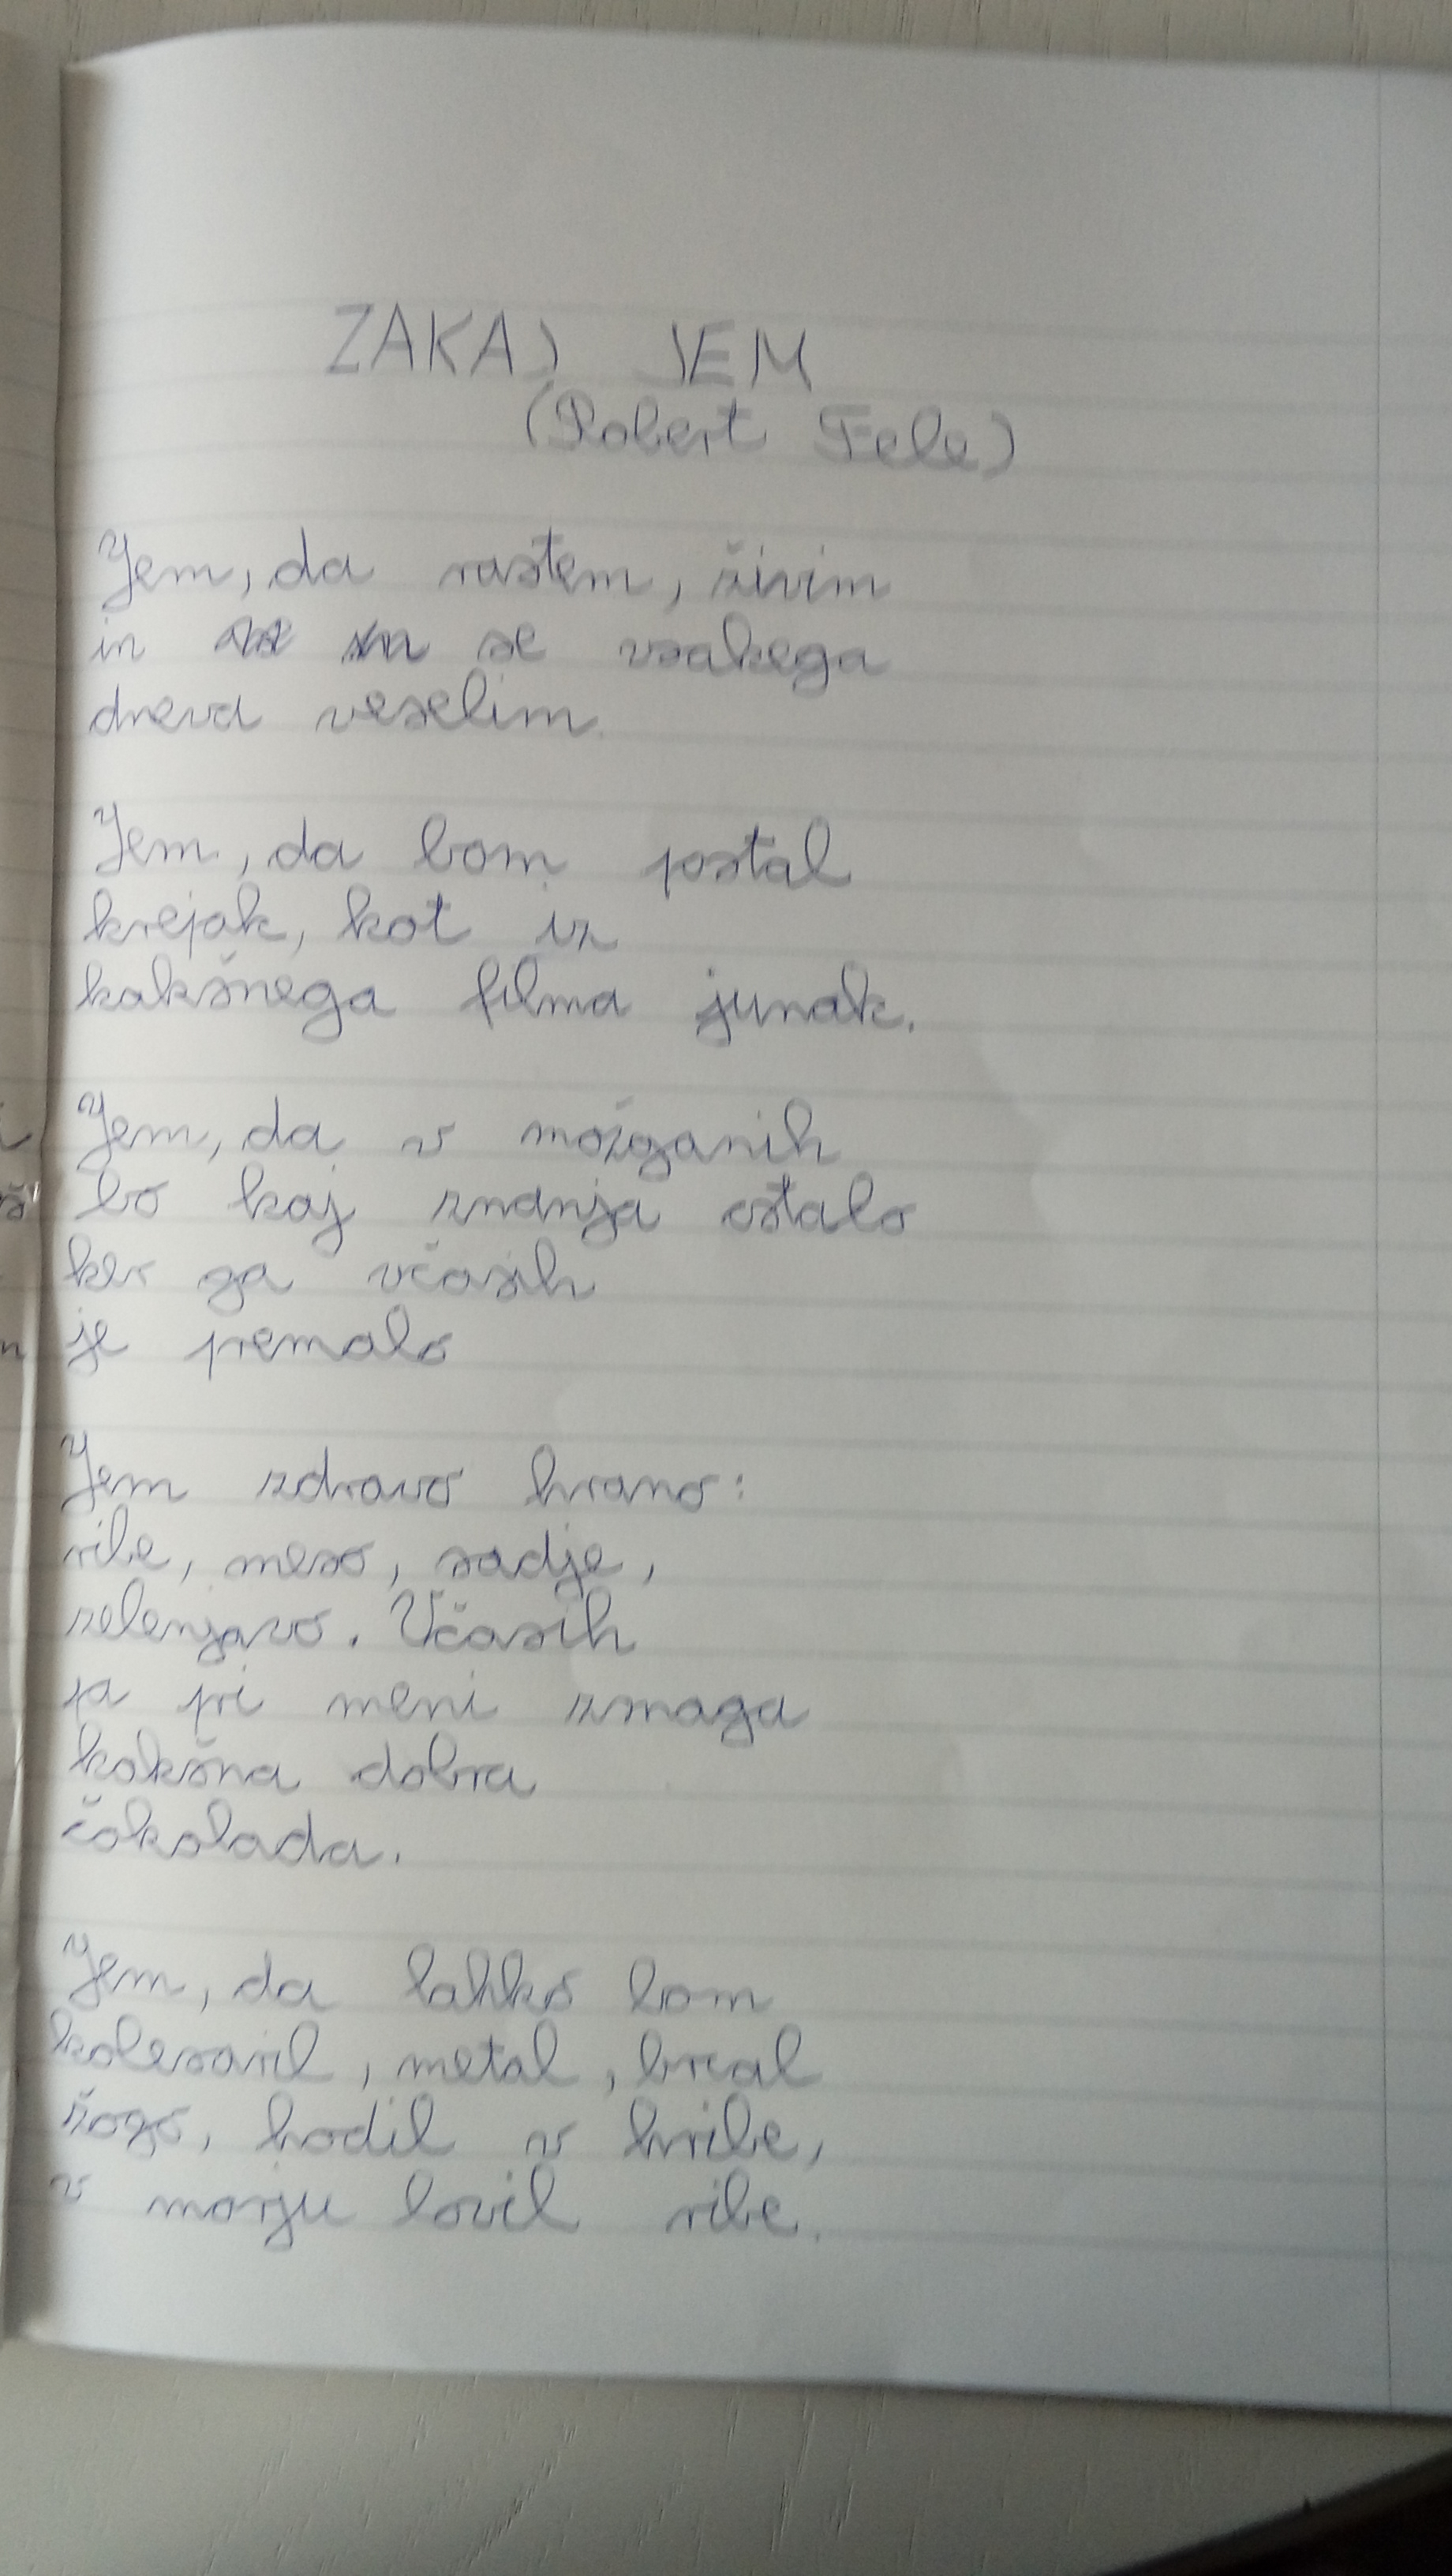 ZAKAJ JEM
(Robert Fele)
Jem, da rastem, živim
in se vsakega
dreva veselim.
Jem, da bom postal
krejak, kot iz
kakšnega filma junak.
Jem, da v možganih
bo kaj znanja ostalo
ker ga včasih
je premalo
Jem zdravo hrano:
ribe, meso, sadje,
zelenjavo. Včasih
pa pri meni zmaga
kakšna dobra
čokolada.
Jem, da lahko bom
kolesaril, metal, brcal
žogo, hodil v hribe,
v morju lovil ribe.